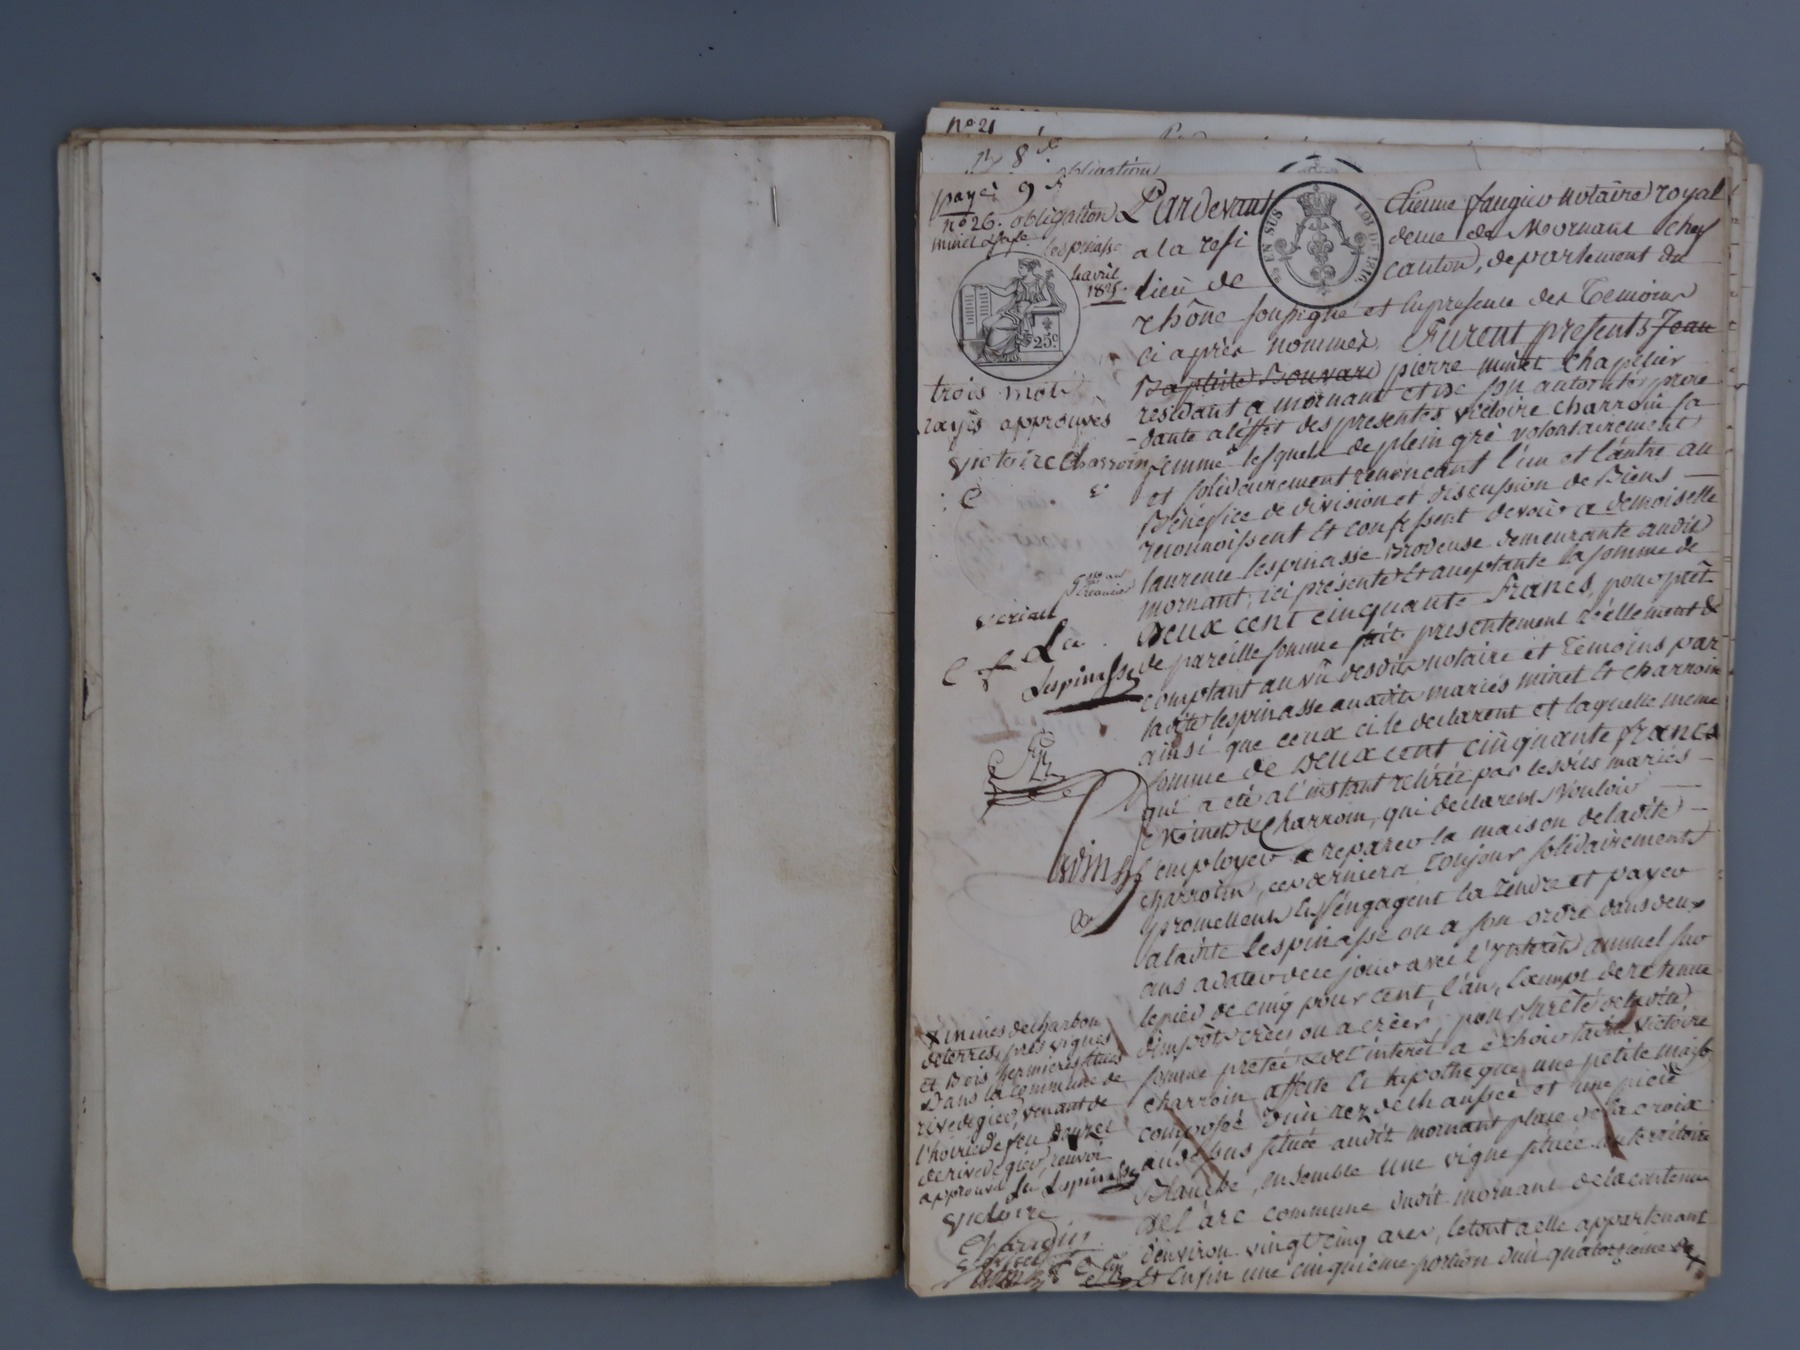 no 21
obligation
payé 9
no 26. obligation
minet &
lespinasse
4 avril
1825.
25 EN SUS
LOI DE 1816.
25c
trois mots
rayés approuvés
victoire Charroin
Pardevant Etienne faugier notaire royal
a la resi dence de Mornant chef
lieu de canton, departement du
rhône soussigné et En presence des Temoins
ci après nommés. Furent presents Jean
Baptiste Bouvard pierre minet chapelier
residant a mornant et de son autorité proce
-dante a l'effet des presentes victoire charroin sa
femme lesquels de plein gré volontairement
et solidairement renoncant l'un et l'autre au
Bénéfice de division et discussion de Biens —
reconnoissent et confessent devoir a demoiselle
laurence lespinasse Brodeuse demeurante audit
mornant, ici présente et acceptante la somme de
Deux cent cinquante Francs, pour prêt
de pareille somme fait presentement réellement &
comptant au vû desdits notaire et Temoins par
ladite lespinasse auxdits mariés minet et charroin
ainsi que ceux ci le declarent et laquelle meme
somme de Deux cent cinquante francs
qui a été a l'instant retirée par lesdits mariés —
Minet & Charroin, qui declarent vouloir —
l'employer a reparer la maison de ladite —
charroin, ces derniers toujour solidairement
promettent et s'engagent la rendre et payer
a ladite lespinasse ou a son ordre dans deux
ans a dater de ce jour avec l'Interêt annuel sur
le pied de cinq pour cent l'an, Exempt de retenue
d'impôts crées ou a créer; pour sureté de ladite
somme pretée & de l'interêt a échoir ladite victoire
charroin affecte et hypotheque une petite maison
composée d'un rez de chaussée et une pièce
au dessus située audit mornant place de la croix
Blanche, ensemble une vigne située au territoire
de l'arc commune dudit mornant de la contenue
d'environ vingt cinq ares, le tout a elle appartenant
et Enfin une cinquieme portion d'un quatorzieme de
La
Lespinasse
x mines de charbon
de terres, prés vignes
et Bois
Dans la commune de
rivedegier, venant de
l'hoirie de feu Douzel
de rivedegier, renvoi
approuvé La Lespinasse
victoire
Charoin